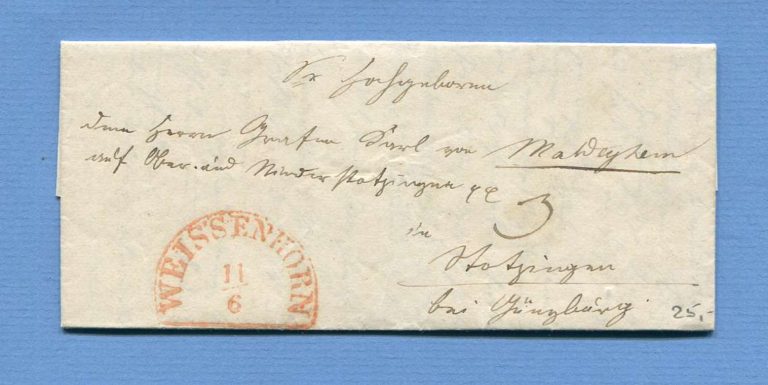 Sr Hochgeboren
dem Herrn Grafen Karl von Maldeghem
auf Ober- und Niederstotzingen
3
in
Stotzingen
bei Günzburg
25,-
WEISSENHORN
11
6